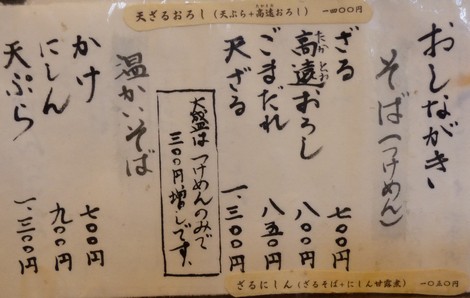 天ざるおろし（天ぷら+高遠おろし） 一四〇〇円
おしながき
そば（つけめん）
ざる 七〇〇円
高遠おろし 八〇〇円
たかとお
ごまだれ 八五〇円
天ざる 一、三〇〇円
大盛はつけめんのみで
三〇〇円増しです。
温かいそば
かけ 七〇〇円
にしん 九〇〇円
天ぷら 一、三〇〇円
ざるにしん（ざるそば+にしん甘露煮） 一〇五〇円